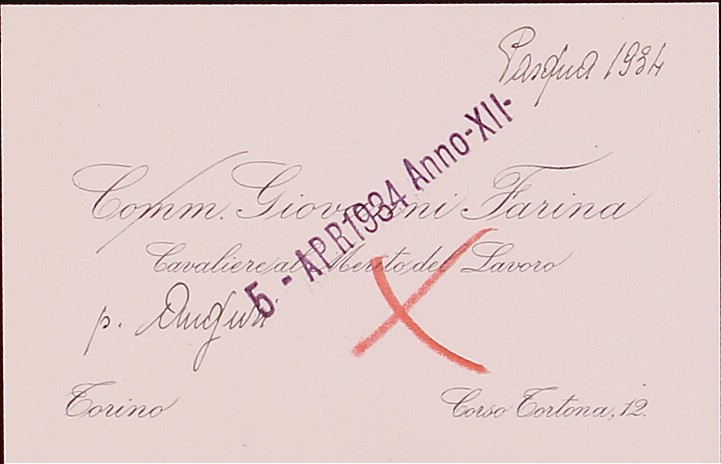 Pasqua 1934
5 - APR 1934 Anno-XII-
Comm. Giovanni Farina
Cavaliere al Merito del Lavoro
p. Auguri
Torino
Corso Tortona, 12.